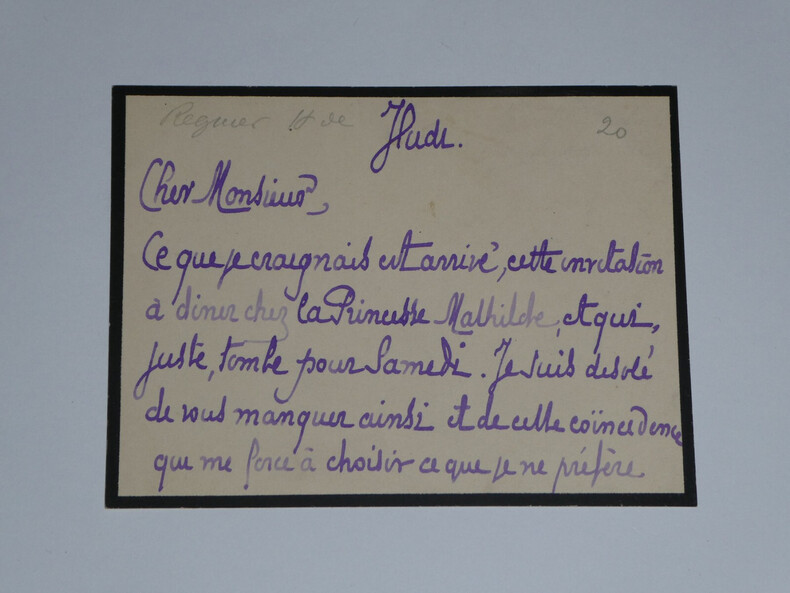 Regnier H de
20
Jeudi.
Cher Monsieur,
Ce que je craignais est arrivé, cette invitation
à diner chez la Princesse Mathilde, et qui,
juste, tombe pour Samedi. Je suis desolé
de vous manquer ainsi et de cette coïncidence
qui me force à choisir ce que je ne préfère